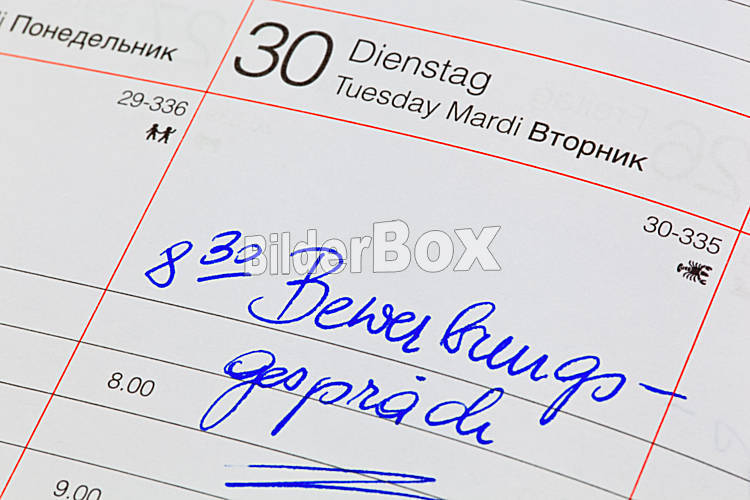 i Понедельник
30 Dienstag
Tuesday Mardi Вторник
29-336
30-335
BilderBOX
8 30 Bewerbungs-
gespräch
8.00
9.00